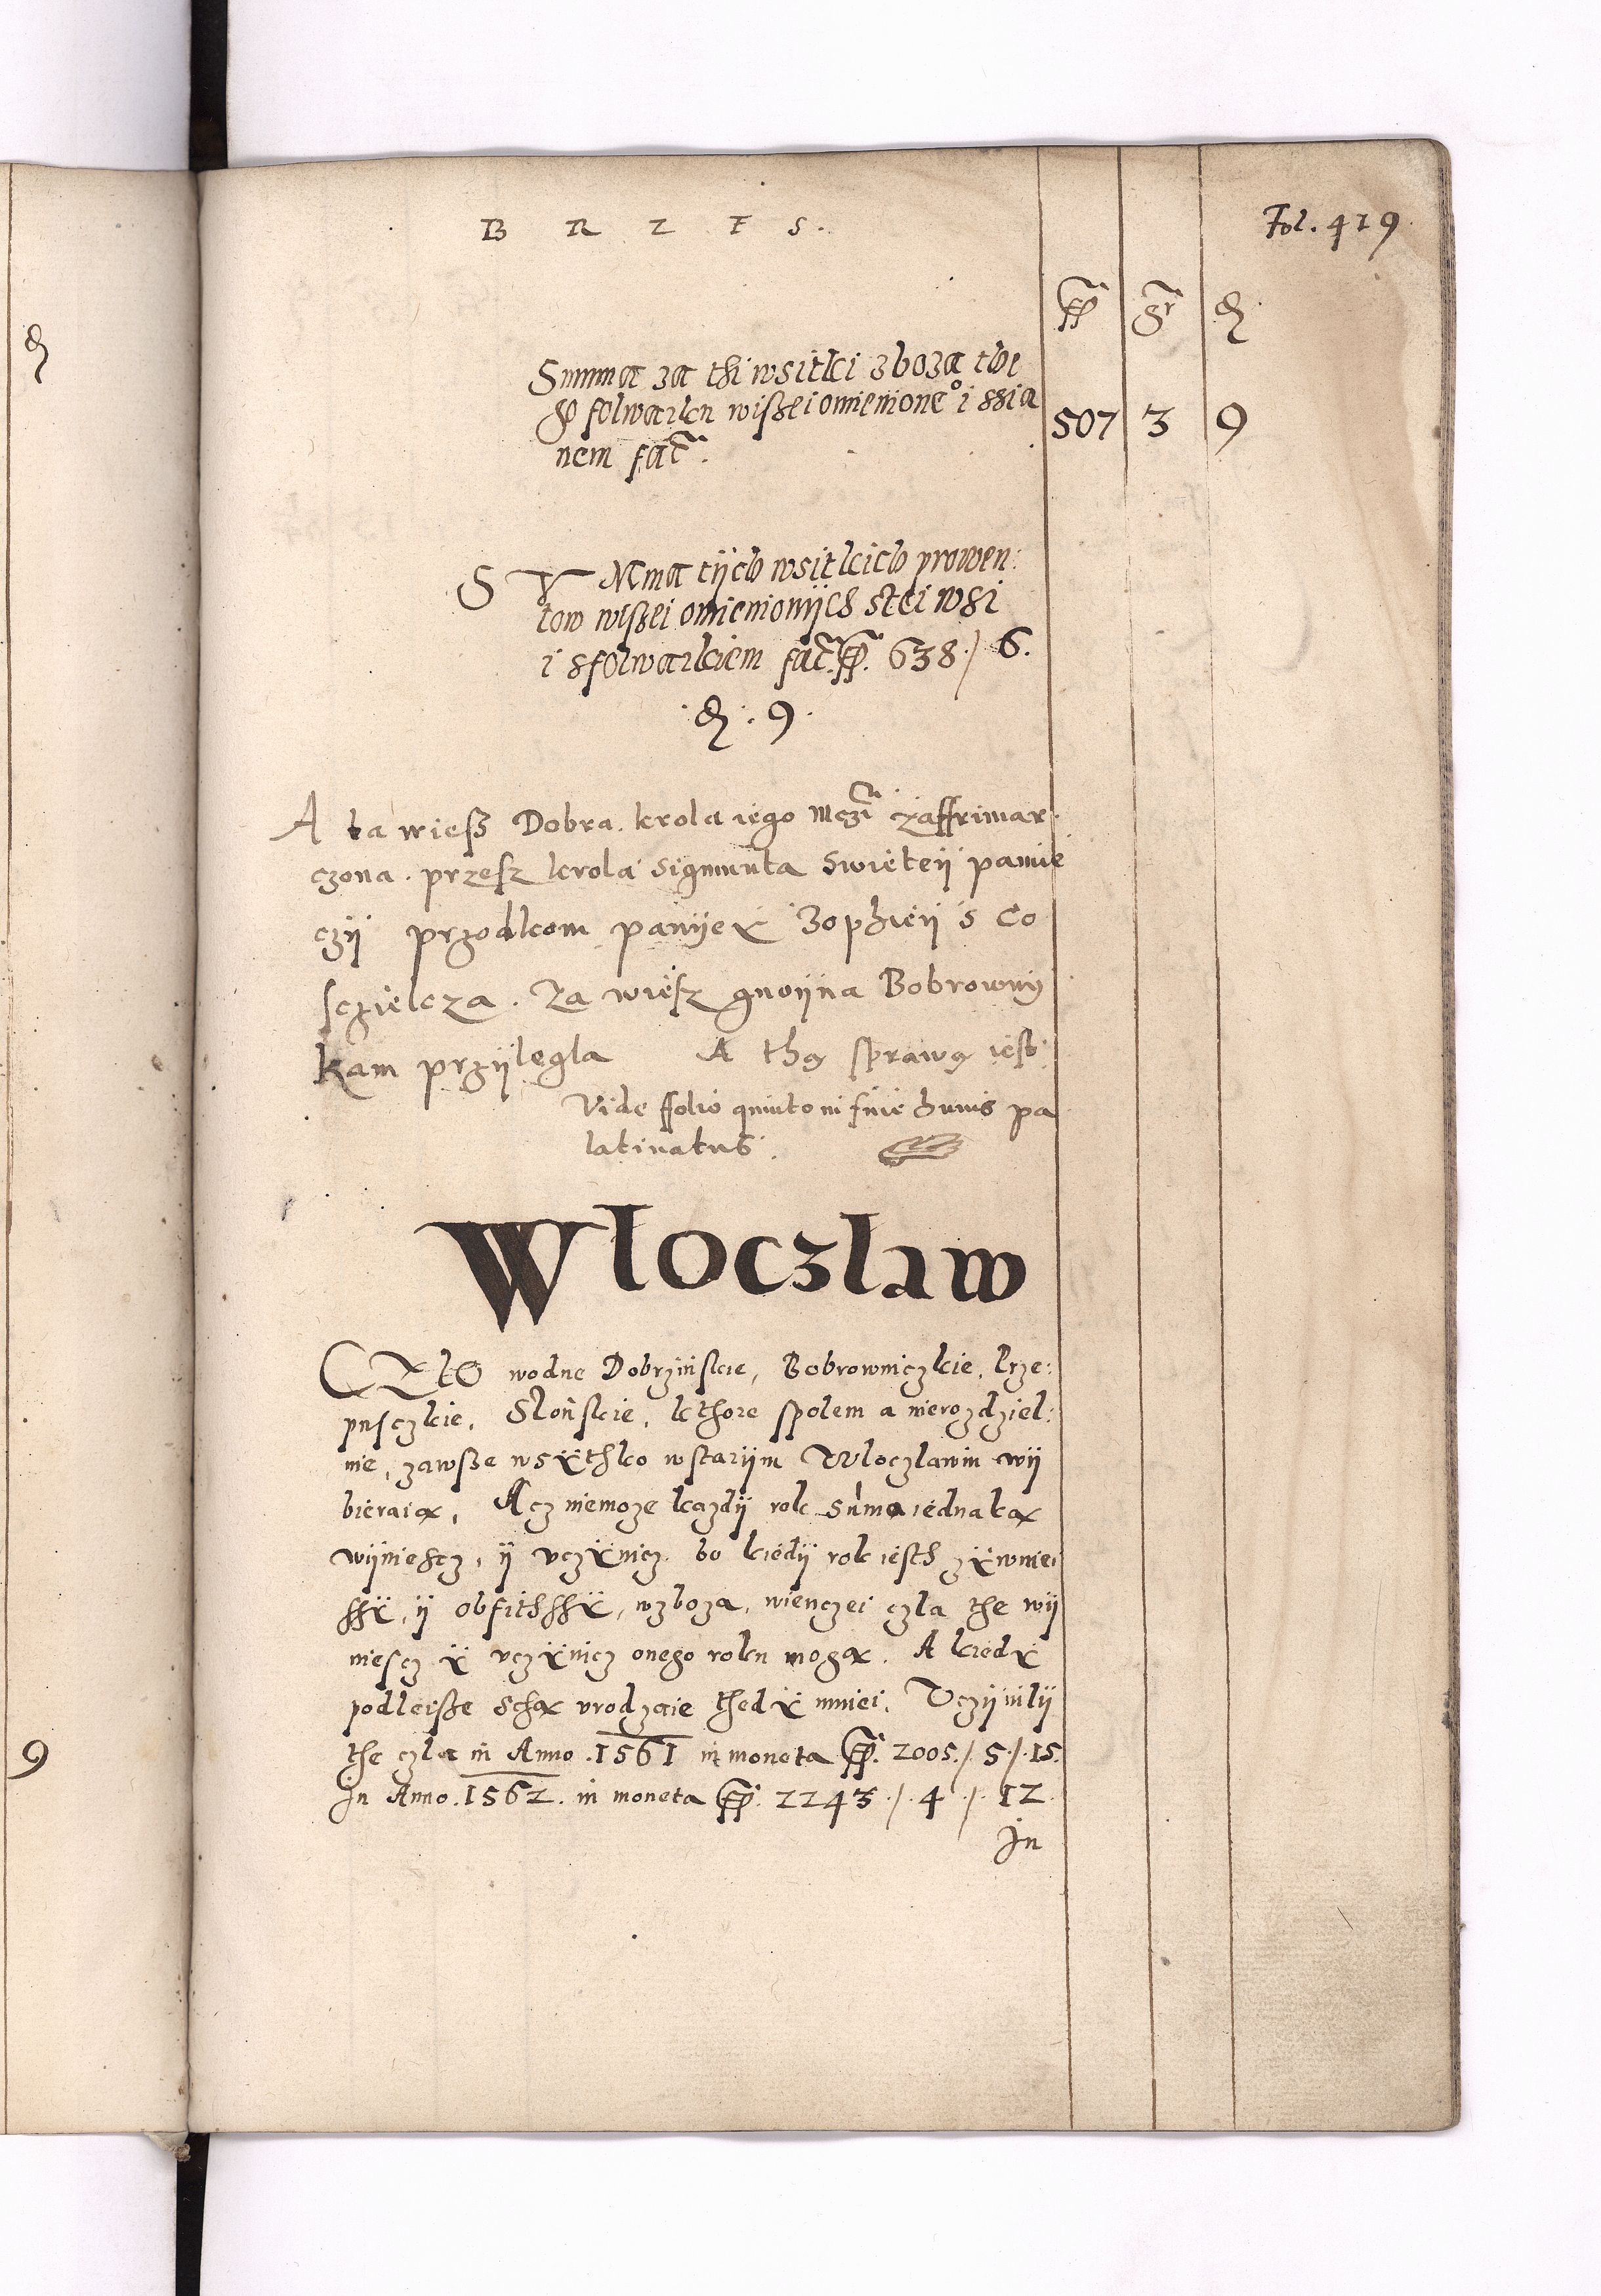 B R Z E S.
Fol. 419
gr
Summa za thi wsitki zboza the
go folwarku wiszei omienione° i ssia
nem fac̃.
507 3 9
SVMma tijch wsitkich prowen:
tow wiszei omienionijch stei wsi
i sfolwarkiem fac̃. 638 / 6.
9
A ta wiesz Dobra krola iego mczi zaffrimar
czona. przesz krola sigmunta swietey pamie
czij przodkom panijeÿ Zophieij s Co
sczielcza. Za wiesz gnoijna Bobrowni
kam przijlegla A tho sprawo iest
Vide ffolio quinto in fine huius pa
latinatus.
Wloczlaw
CZLO wodne Dobrzinskie, Bobrowniczkie, Prze:
pusczkie, Slońskie, kthore spolem a nierozdziel:
nie, zawsze wsÿthko w starijm Wloczlawiu wij
bieraiæ, Acz niemoze kazdij rok suma iednakæ
wijniescz, ij vczÿnicz. bo kiedij rok iesth zÿwniei
sschÿ, ij obfithsschÿ, wzboza, wienczei czla the wij
niescz ÿ vczÿnicz onego roku mogæ. A kiedÿ
podleisze schæ vrodzaie thedÿ mniei. Vczijnilij
the czla in Anno .1561 in moneta 2005 / 5 / 15.
In Anno .1562. in moneta 2243 / 4 / 12
In
9